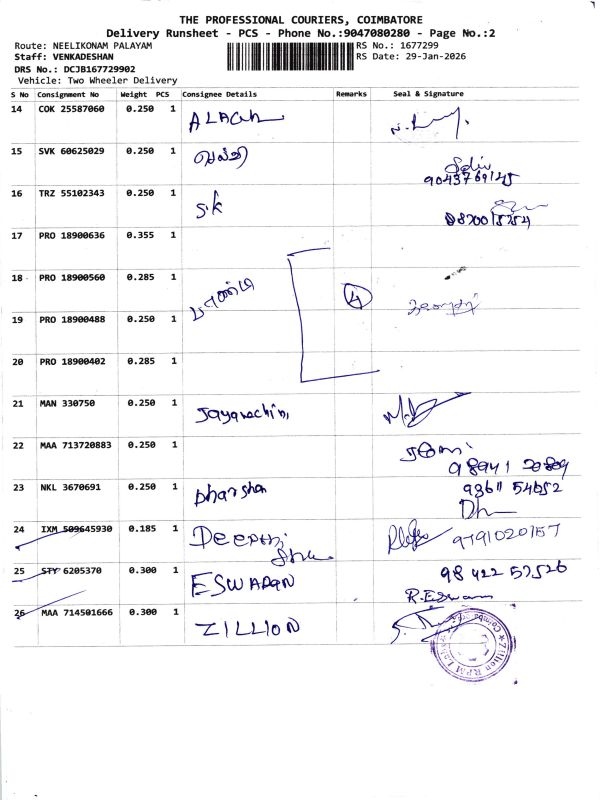 THE PROFESSIONAL COURIERS, COIMBATORE
Delivery Runsheet - PCS - Phone No.:9047080280 - Page No.:2
Route: NEELIKONAM PALAYAM
RS No.: 1677299
Staff: VENKADESHAN
RS Date: 29-Jan-2026
DRS No.: DCJB167729902
Vehicle: Two Wheeler Delivery
S No Consignment No Weight PCS Consignee Details Remarks Seal & Signature
14 COK 25587060 0.250 1
15 SVK 60625029 0.250 1
16 TRZ 55102343 0.250 1 S.K
17 PRO 18900636 0.355 1
18 PRO 18900560 0.285 1 4
19 PRO 18900488 0.250 1
20 PRO 18900402 0.285 1
21 MAN 330750 0.250 1
22 MAA 713720883 0.250 1
23 NKL 3670691 0.250 1 Dharshan 93611 54652
24 IXM 509645930 0.185 1 DEEPTHI 9791020157
25 STY 6205370 0.300 1 ESWARAN 98422 57526
R.Eswaran
26 MAA 714501666 0.300 1 ZILLION